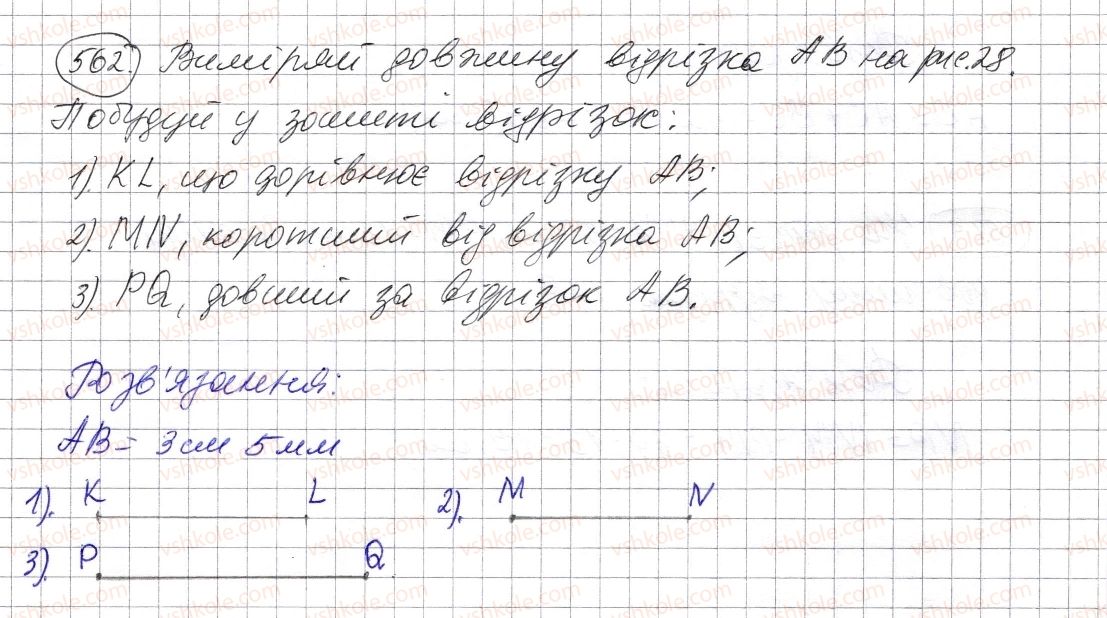 562. Виміряй довжину відрізка AB на рис. 28.
Побудуй у зошиті відрізок:
1). KL, що дорівнює відрізку AB;
2). MN, коротший від відрізка AB;
3). PQ, довший за відрізок AB.
Розв'язання:
AB = 3 см 5 мм
1). K L 2). M N
3). P Q